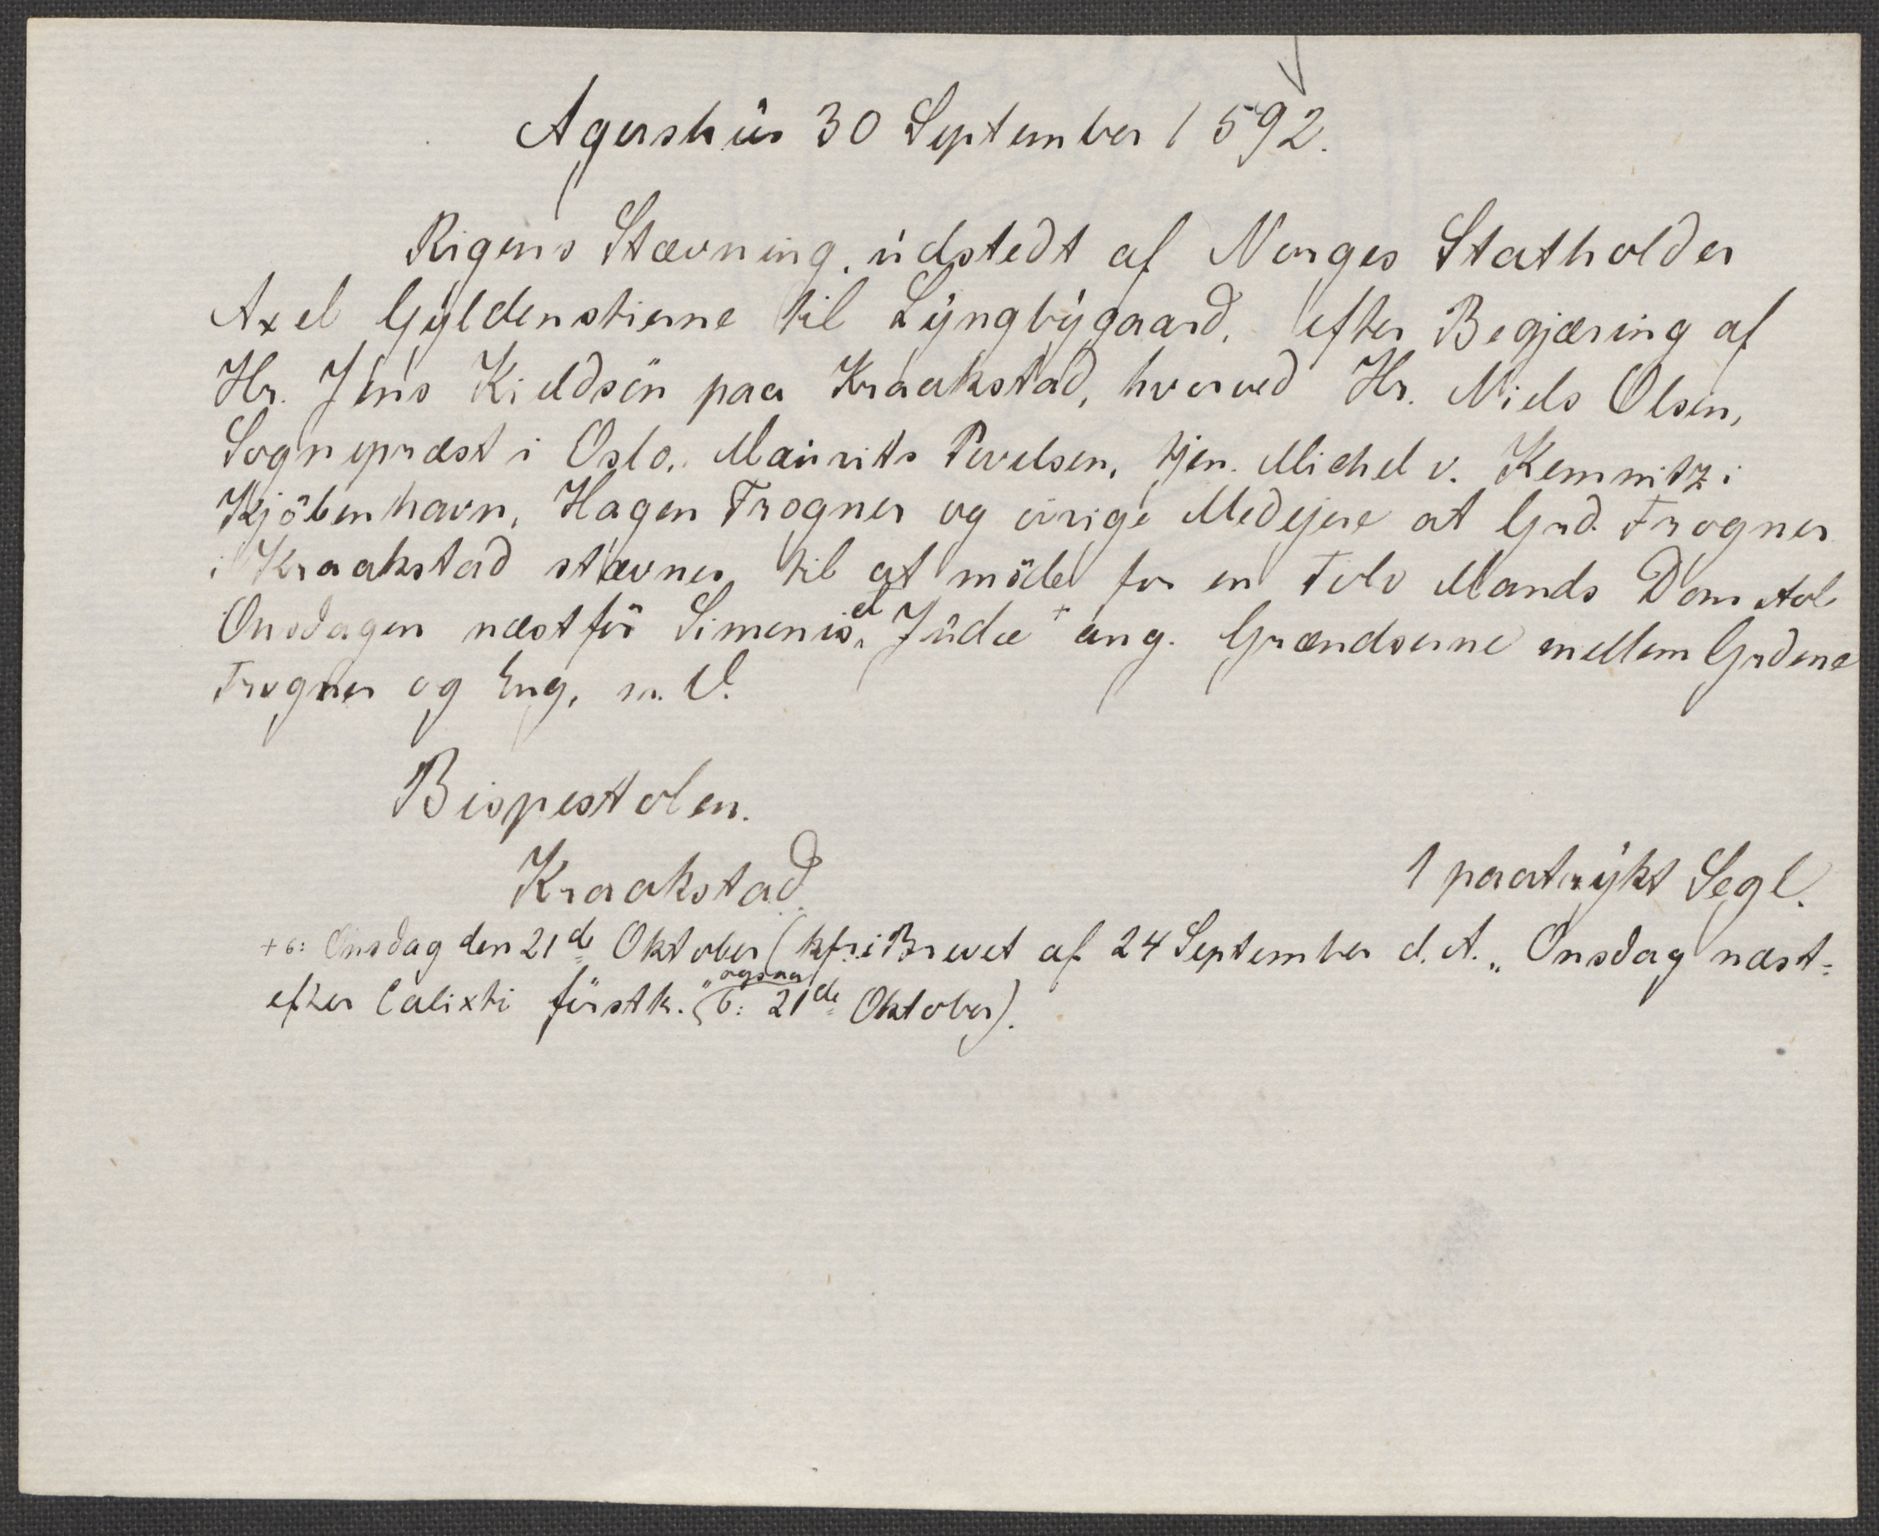 Agershus 30 September 1592.
Rigens Stævning, udstedt af Norges Statholder
Axel Gyldenstierne til Lyngbygaard, efter Begjæring af
Hr. Jens Kieldsön paa Kraakstad, hvorved Hr. Niels Olsen,
Sognepræst i Oslo, Maurits Povelsen, tjen. Michel v. Kemnitz i
Kjöbenhavn, Hagen Frogner og övrige Medejere at Grd. Frogner
i Kraakstad stævnes til at möde for en Tolv Mands Domstol
Onsdagen næst för Simonis et Judæ + ang. Grændserne mellem Grdene
Frogner og Eng, m. V.
Bispestolen.
Kraakstad.
1 paatrykt Segl.
+ ɔ: Onsdag den 21de Oktober (kfr. i Brevet af 24 September d. A. „Onsdag næst-
efter Calixti förstk.” ɔ: ogsaa 21de Oktober).